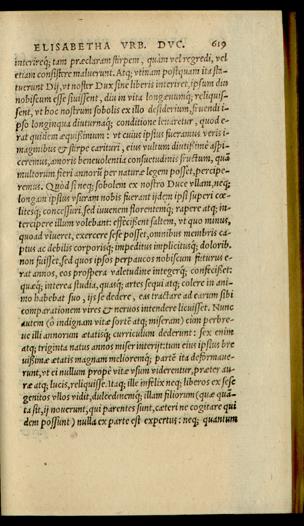 ELISABETHA VRB. DVC. 619
interireq́; tam præclaram stirpem, quàm vel regredi, vel
etiam consistere maluerunt. Atq; vtinam postquam ita sta-
tuerunt Dij, vt noster Dux sine liberis interiret, ipsum diu
nobiscum esse siuissent, diu in vita longæuumq́; reliquis-
sent, vt hoc nostrum sobolis ex illo desiderium, fruendi i-
pso longinqua diuturnaq́; conditione leuaretur, quod e-
rat quidem æquissimum: vt cuius ipsius fueramus veris i-
maginibus & stirpe carituri, eius vultum diutissimè aspi-
ceremus, amoris beneuolentia consuetudinis fructum, quã
multorum fieri annorũ per naturæ legem posset, percipe-
remus. Quòd si neq; sobolem ex nostro Duce vllam, neq;
longam ipsius vsuram nobis fuerant ijdem ipsi superi cœ-
litesq́; concessuri, sed iuuenem florentemq́; rapere atq; in-
tercipere illum volebant: effecissent saltem, vt quo minus,
quoad viueret, exercere sese posset, omnibus membris ca-
ptus ac debilis corporisq́; impeditus implicitusq́; dolorib.
non fuisset, sed quos ipsos perpaucos nobiscum futurus e-
rat annos, eos prospera valetudine integerq́; confecisset:
quæq́; interea studia, quasq́; artes sequi atq; colere in ani-
mo habebat suo, ijs se dedere, eas tractare ad earum sibi
comparationem vires & neruos intendere licuisset. Nunc
autem (ô indignam vitæ sortẽ atq; miseram) cùm perbre-
ue illi annorum ætatisq́; curriculum dederunt: sex enim
atq; triginta natus annos miser interijt: tum eius ipsius bre
uissimæ ætatis magnam melioremq́; partẽ ita deformaue-
runt, vt ei nullum propè vitæ vsum viderentur, præter au-
ræ atq; lucis, reliquisse. Itaq; ille infelix neq; liberos ex sese
genitos vllos vidit, dulcedinemq́; illam filiorum (quæ quã-
ta sit, ij nouerunt, qui parentes sunt, cæteri ne cogitare qui
dem possunt) nulla ex parte est expertus: neq; quantum